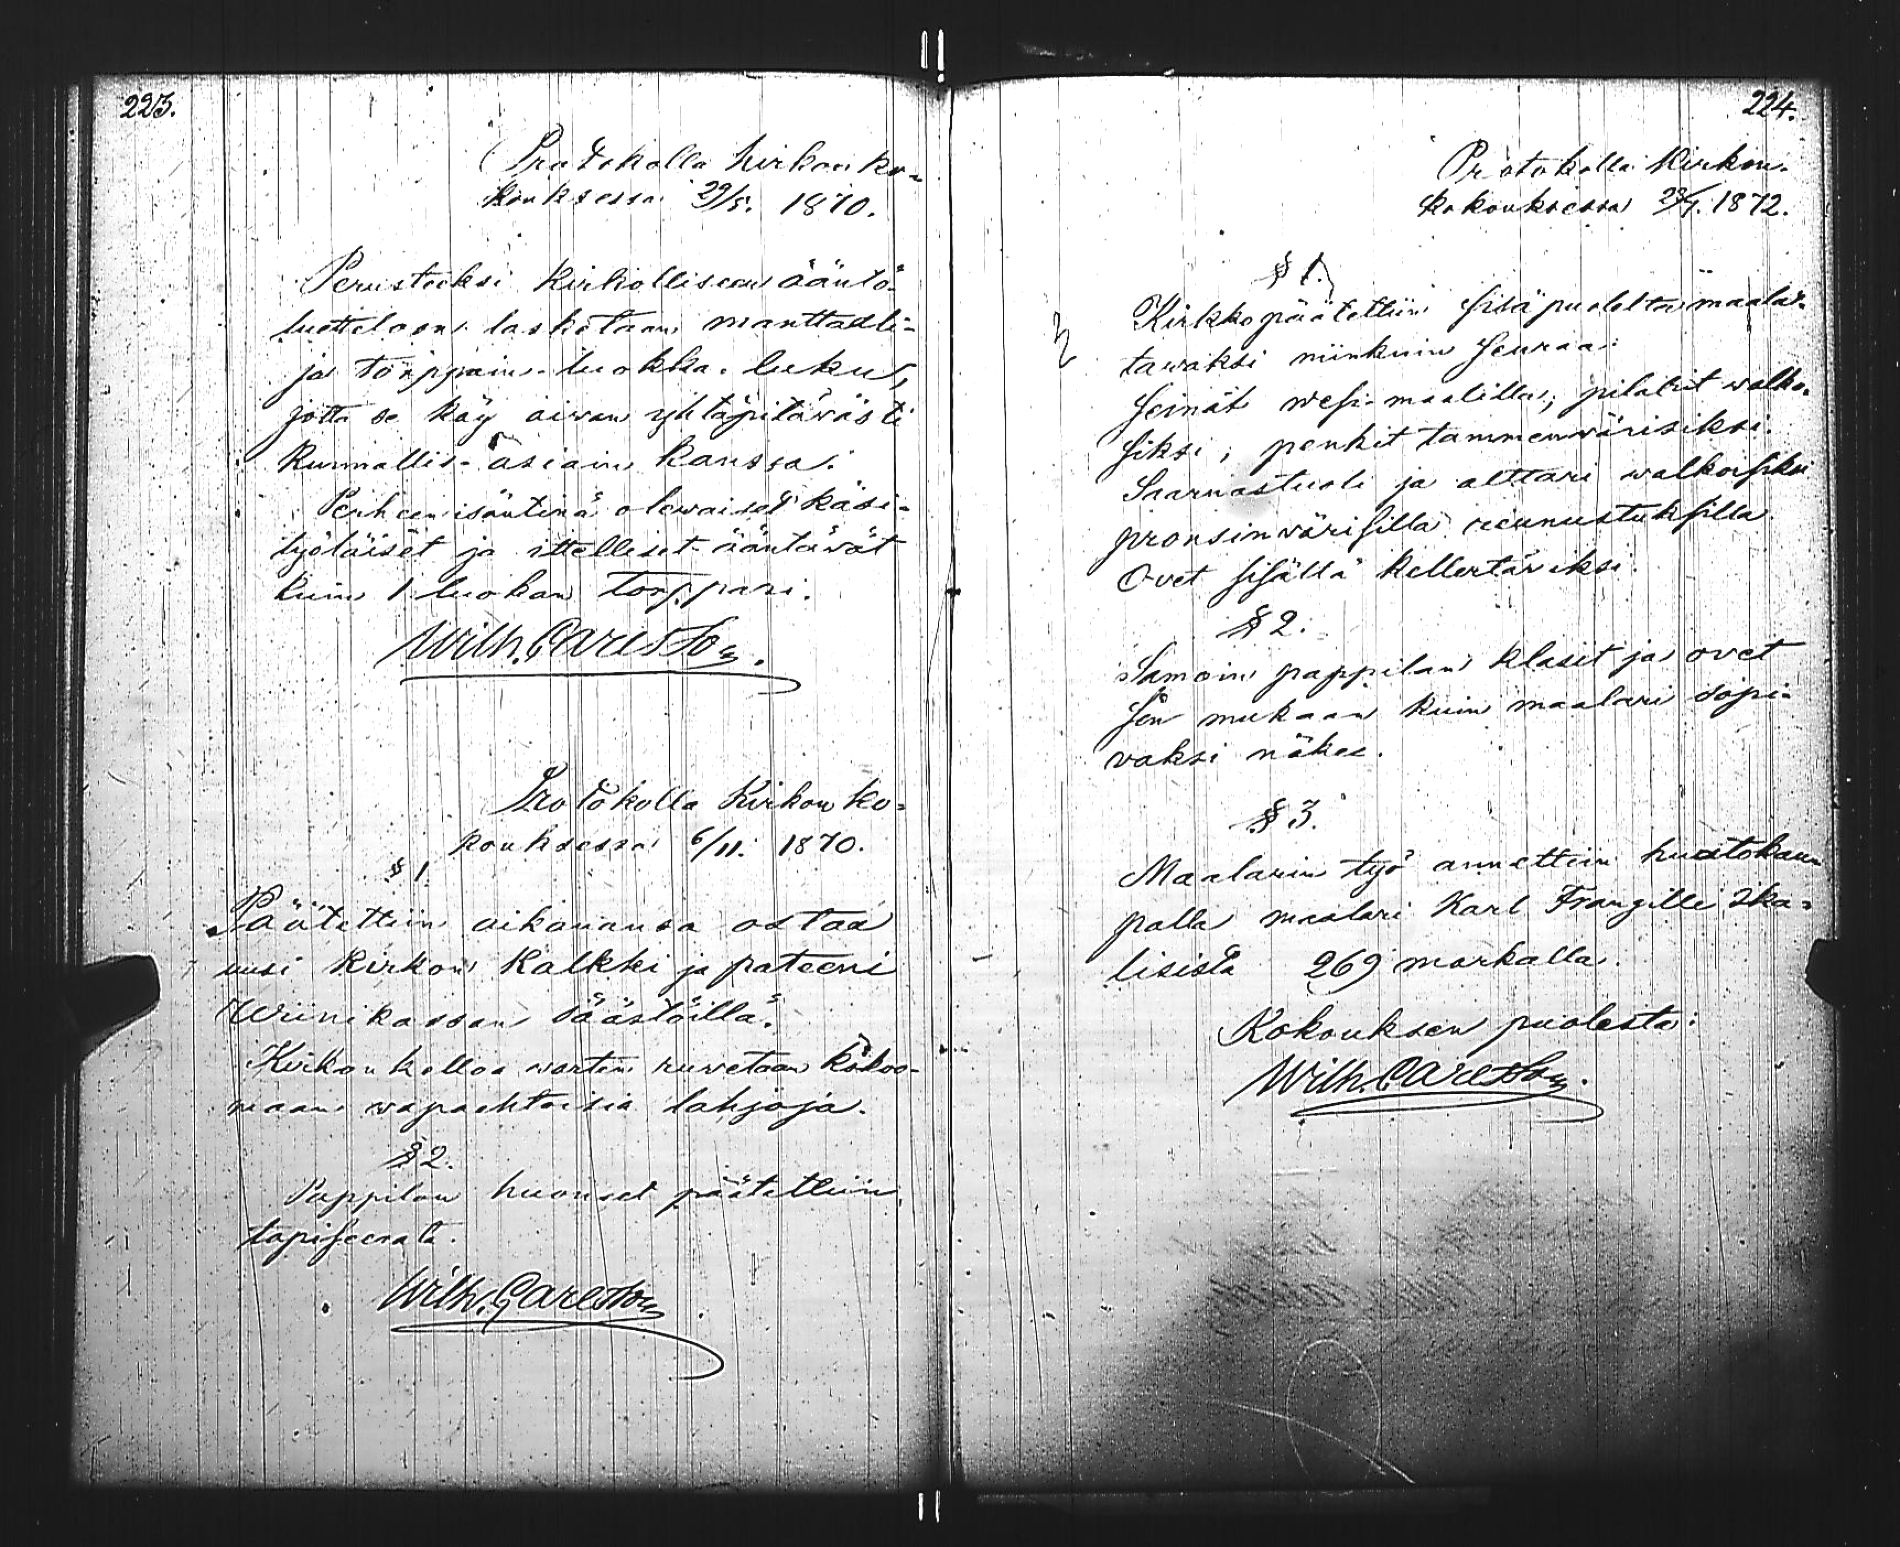 223.
Protokolla kirkon ko-
kouksessa 29/5. 1870.
Perusteeksi kirkolliseen ääntö-
luetteloon lasketaan manttaali-
ja torppain-luokka-luku,
jotta se käy aivan yhtäpitävästi
kunnallis-asiain kanssa.
Perheenisäntinä olewaiset käsi-
työläiset ja ittelliset ääntävät
kuin 1 luokan torppari.
Wilh. Carlsson.
Protokolla Kirkon ko-
kouksessa 6/11. 1870.
§ 1
Päätettiin aikanansa ostaa
uusi kirkon kalkki ja pateeni
Wiinikassan säästöillä.
Kirkon kelloa warten ruwetaan kokoo-
maan wapaehtoisia lahjoja.
§ 2.
Pappilan huoneet päätettiin
tapiseerata.
Wilh. Carlsson
224.
Protokolla Kirkon-
kokouksessa 1872.
§ 1.
Kirkko päätettiin sisäpuolelta maalat-
tawaksi niinkuin seuraa:
Seinät wesi-maalilla; pilarit walko-
siksi; penkit tammenwärisiksi.
Saarnastuoli ja alttari walkoisiksi
pronsinwärisillä reunustuksilla.
Ovet sisältä kellertäviksi.
§ 2.
Samoin pappilan klasit ja ovet
sen mukaan kuin maalari sopi-
vaksi näkee.
§ 3.
Maalarin työ annettiin huutokau-
palla maalari Karl Frangille Ika-
lisista 269 markalla.
Kokouksen puolesta:
Wilh. Carlsson.